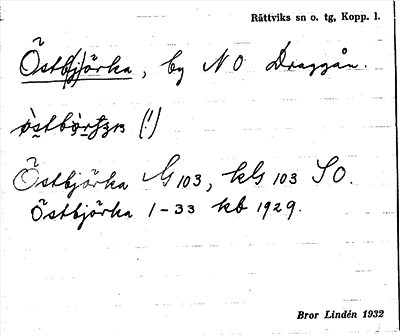 Rättviks sn o. tg, Kopp. l.
Östb(j)örka, by NO Draggån.
(!)
Östbjörka G 103, kG 103 SO.
Östbjörka 1-33 kb 1929.
Bror Lindén 1932